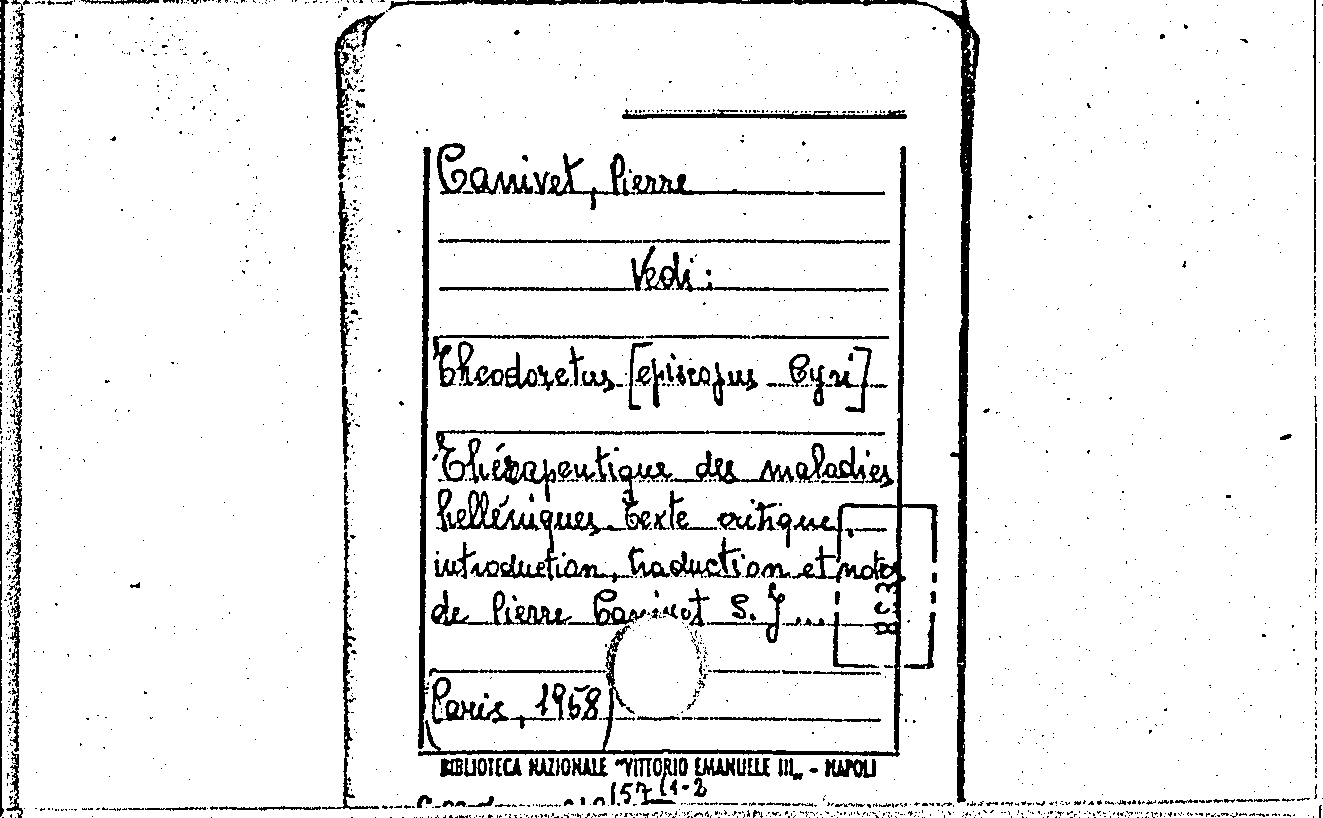 Canivet, Pierre
Vedi:
Theodoretus [episcopus Cyri]
Thérapeutique des maladies
helléniques. Texte critique,
introduction, traduction et notes
de Pierre Canivet S. J...
(Paris, 1958)
BIBLIOTECA NAZIONALE "VITTORIO EMANUELE III„ - NAPOLI
(57 (1-2